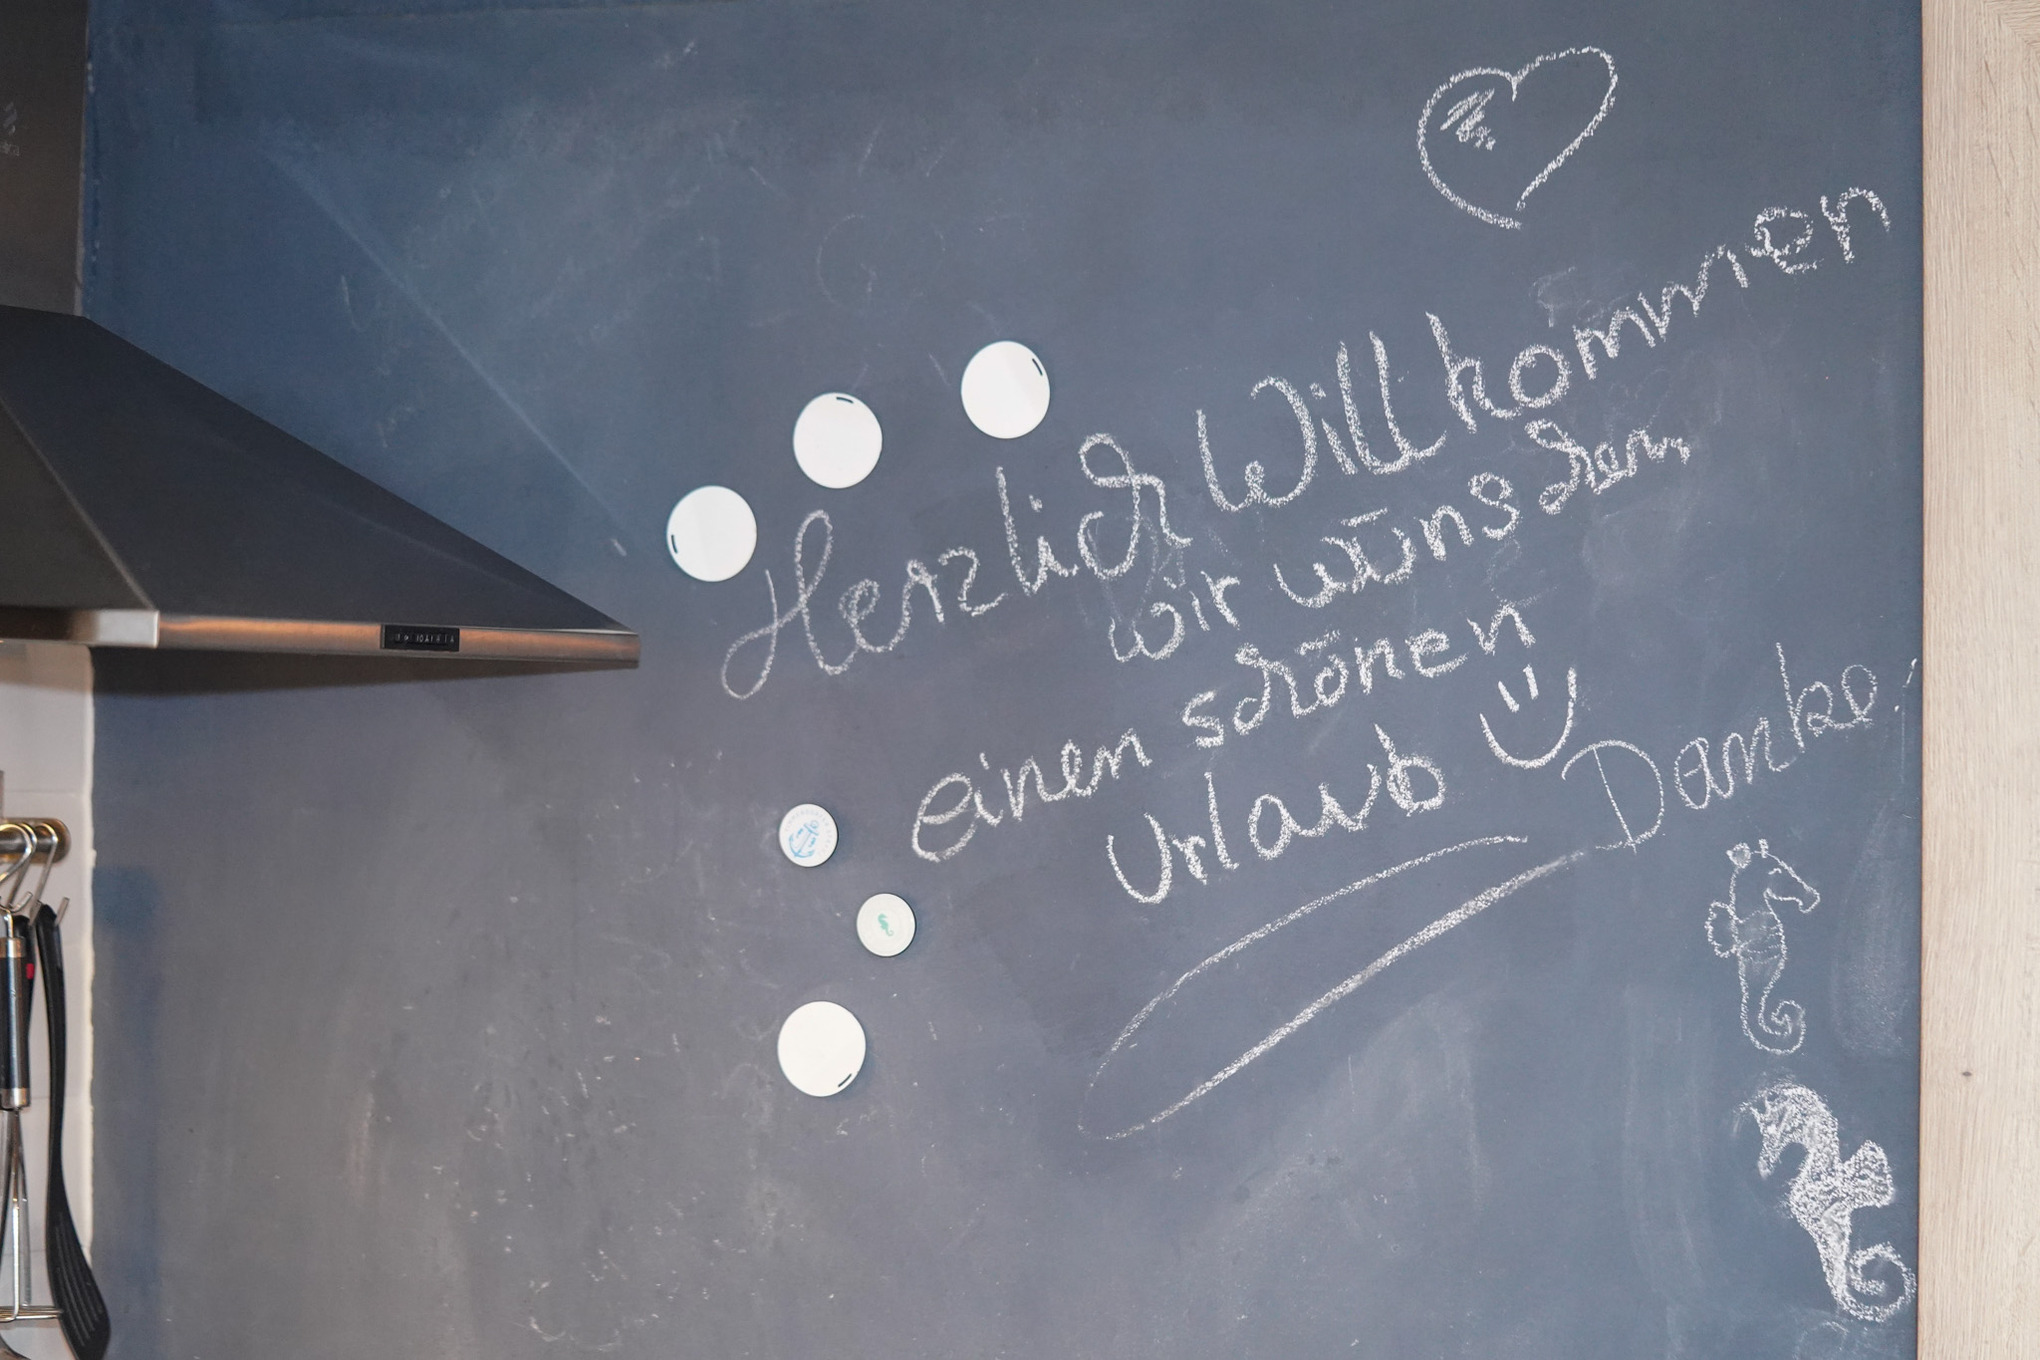 Herzlich Willkommen
wir wünschen
einen schönen
Urlaub
Danke!